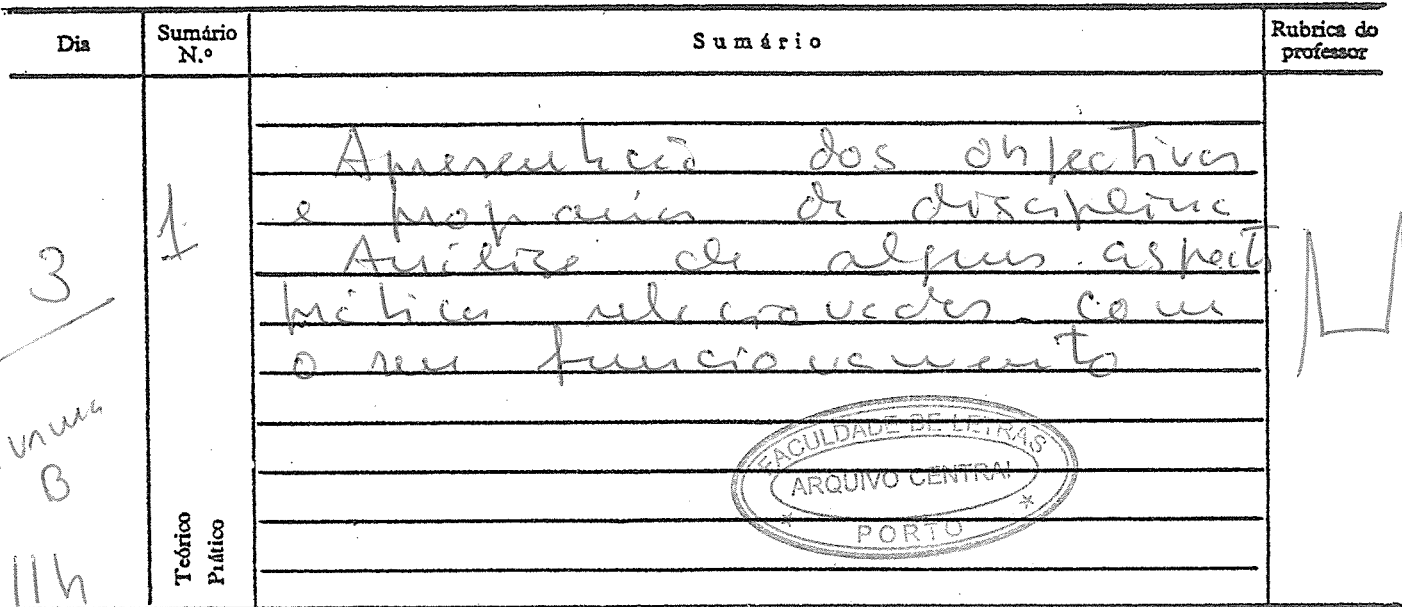 Dia
Sumário N.º
Sumário
Rubrica do professor
3
1
Apresentação dos objectivos
e programa da disciplina
Análise de alguns aspectos
práticos relacionados com
o seu funcionamento
Turma
B
11h
Teórico
Prático
FACULDADE DE LETRAS
ARQUIVO CENTRAL
PORTO